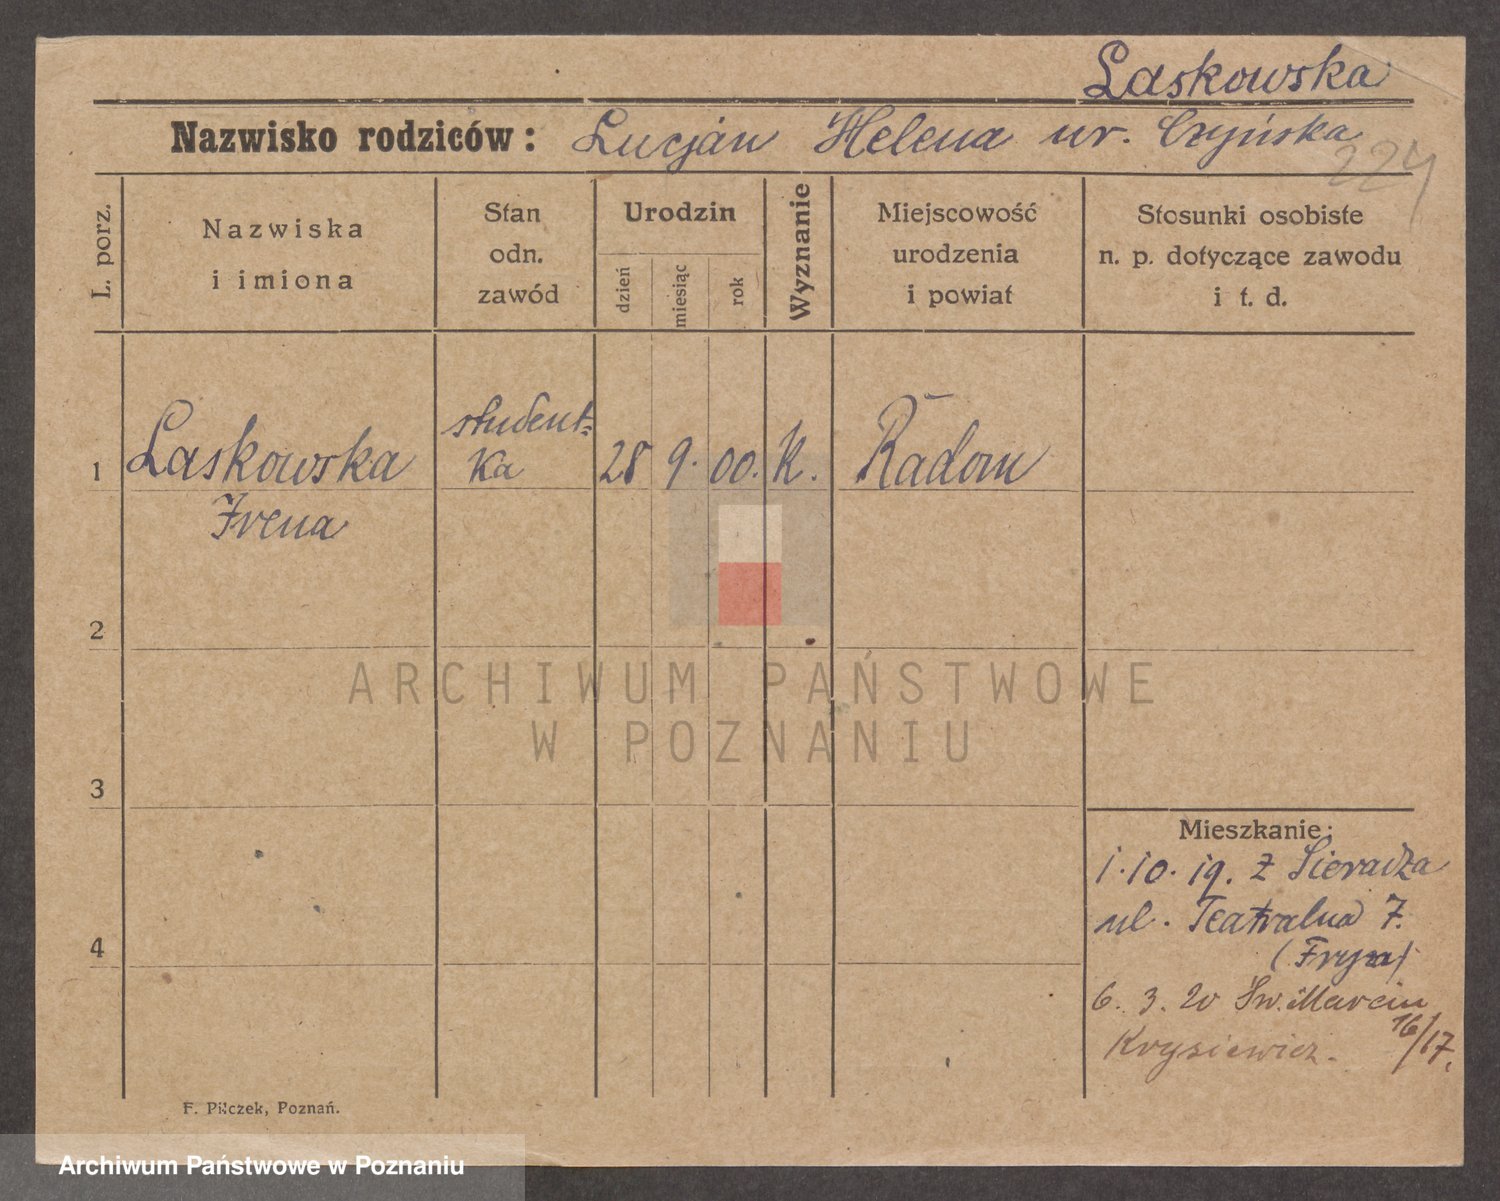 Laskowska
Nazwisko rodziców: Lucjan Helena ur. Czyńska
224
L. porz.
Nazwiska
i imiona
Stan
odn.
zawód
Urodzin
dzień
miesiąc
rok
Wyznanie
Miejscowość
urodzenia
i powiat
Stosunki osobiste
n. p. dotyczące zawodu
i t. d.
1 Laskowska student- 28 9. 00. k. Radom
ka
Irena
2
3
4
ARCHIWUM PAŃSTWOWE
W POZNANIU
Mieszkanie:
1.10.19. z Sieradza
ul. Teatralna 7.
(Fryza)
6. 3. 20 Św. Marcin
16/17.
Krysiewicz.
F. Pilczek, Poznań.
Archiwum Państwowe w Poznaniu